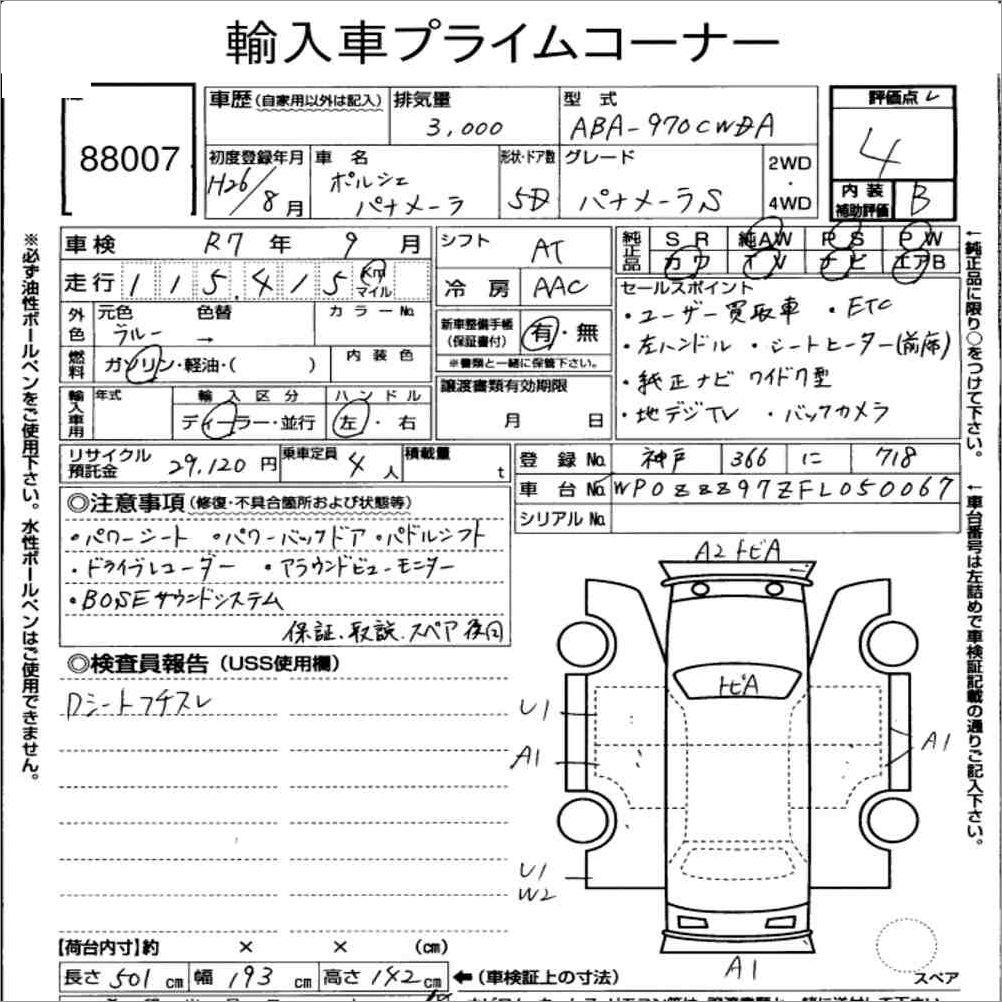 輸入車プライムコーナー
88007
車歴(自家用以外は記入) 排気量 3,000 型式 ABA-970CWDA
評価点 4
初度登録年月 H26/8月 車名 ポルシェ パナメーラ 形状・ドア数 5D グレード パナメーラS 2WD・4WD
内装補助評価 B
車検 R7年 9月
シフト AT
純正品 SR 純AW PS PW
カワ TV ナビ エアB
走行 115,415 Km マイル
冷房 AAC
セールスポイント
・ユーザー買取車 ・ETC
・左ハンドル ・シートヒーター(前席)
・純正ナビ ワイド7型
・地デジTV ・バックカメラ
外色 元色 色替 カラーNo.
ブルー →
新車整備手帳(保証書付) 有・無
※書類と一緒に保管下さい。
燃料 ガソリン・軽油・( ) 内装色
譲渡書類有効期限
月 日
輸入車用 年式 輸入区分 ハンドル
ディーラー・並行 左・右
リサイクル預託金 29,120円 乗車定員 4人 積載量 t
登録No. 神戸 366 に 718
車台No. WP0ZZZ97ZFL050067
シリアルNo.
◎注意事項(修復・不具合箇所および状態等)
・パワーシート ・パワーバックドア ・パドルシフト
・ドライブレコーダー ・アラウンドビューモニター
・BOSEサウンドシステム
保証.取説.スペア後日
◎検査員報告(USS使用欄)
Dシートフチスレ
A2 トビA
トビA
U1
A1
A1
U1
W2
A1
スペア
【荷台内寸】約 × × (cm)
長さ 501cm 幅 193cm 高さ 142cm ←(車検証上の寸法)
※必ず油性ボールペンをご使用下さい。水性ボールペンはご使用できません。
←純正品に限り○をつけて下さい。
←車台番号は左詰めで車検証記載の通りご記入下さい。